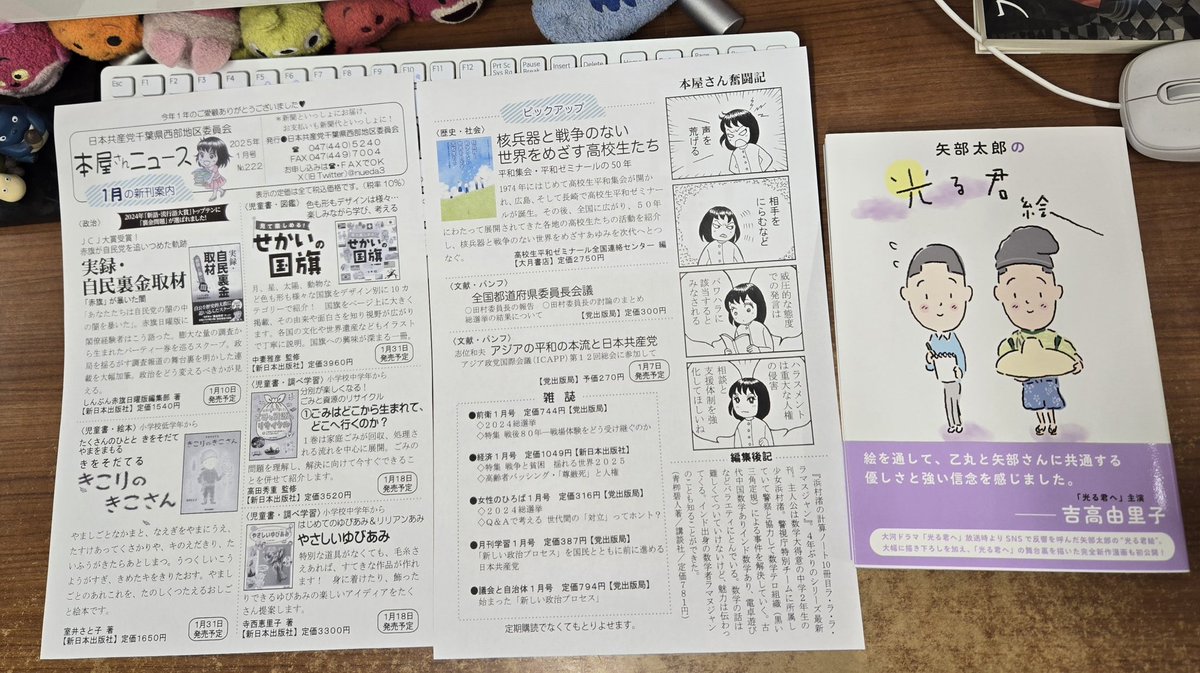 今年１年のご愛顧ありがとうございました♥
日本共産党千葉県西部地区委員会
本屋さんニュース
2025年
1月号
No.222
＊新聞といっしょにお届け、
お支払いも新聞代といっしょに！
発行●日本共産党千葉県西部地区委員会
☎ 047(440)5240
FAX 047(449)7004
お申し込みは☎・FAXでOK
X(旧Twitter)@nueda3
1月の新刊案内
表示の定価は全て税込価格です。（税率10%）
〈政治〉
2024年「新語・流行語大賞」トップテンに
「裏金問題」が選ばれました！
ＪＣＪ大賞受賞！
赤旗が自民党を追いつめた軌跡
実録・
自民裏金取材
「赤旗」が暴いた闇
「あなたたちは自民党の闇の中
の闇を暴いた」。赤旗日曜版に
閣僚経験者はこう語った。膨大な量の調査か
ら生まれたパーティー券を巡るスクープ。政
局を揺るがす調査報道の舞台裏を明かした連
載を大幅加筆。政治をどう変えるべきかが見
える。
しんぶん赤旗日曜版編集部 著
【新日本出版社】定価1540円
1月10日
発売予定
〈児童書・絵本〉小学校低学年から
たくさんのひとと きをそだて
やまをまもる
きをそだてる
きこりの
きこさん
やましごとなかまと、なえぎをやまにうえ、
たすけあってくさかりや、キのえだきり、た
いふうがきたらあとしまつ。うつくしいこう
ようがすぎ、きめたキをきりたおす。やまし
ごとのあれこれを、たのしくつたえるおしご
と絵本です。
室井さと子 著
【新日本出版社】定価1650円
1月31日
発売予定
〈児童書・図鑑〉色も形もデザインは様々…
楽しみながら学び、考える
見て楽しめる！
せかいの
国旗
月、星、太陽、動物な
ど色も形も様々な国旗をデザイン別に10カ
テゴリーで紹介。国旗をページ上に大きく
掲載、その由来や面白さを知り視野が広がり
ます。各国の文化や世界遺産などもイラスト
で丁寧に説明。国旗への興味が深まる一冊。
中妻雅彦 監修
【新日本出版社】定価3960円
1月31日
発売予定
〈児童書・調べ学習〉小学校中学年から
分別が楽しくなる！
ごみと資源のリサイクル
①ごみはどこから生まれて、
どこへ行くのか？
１巻は家庭ごみが回収、処理さ
れる流れを中心に展開。ごみの
問題を理解し、解決に向けて今すぐできるこ
とを併せて紹介します。
高田秀重 監修
【新日本出版社】定価3520円
1月18日
発売予定
〈児童書・調べ学習〉小学校中学年から
はじめてのゆびあみ＆リリアンあみ
やさしいゆびあみ
特別な道具がなくても、毛糸さ
えあれば、すてきな作品が作れ
ます！ 身に着けたり、飾った
りできるゆびあみの楽しいアイディアをたく
さん提案します。
寺西恵里子 著
【新日本出版社】定価3300円
1月18日
発売予定
ピックアップ
〈歴史・社会〉
核兵器と戦争のない
世界をめざす高校生たち
平和集会・平和ゼミナールの50年
1974年にはじめて高校生平和集会が開か
れ、広島、そして長崎で高校生平和ゼミナー
ルが誕生。その後、全国に広がり、50年
にわたって展開されてきた各地の高校生たちの活動を紹介
しつつ、核兵器と戦争のない世界をめざすあゆみを次代へと
つなぐ。
高校生平和ゼミナール全国連絡センター 編
【大月書店】定価2750円
〈文献・パンフ〉
全国都道府県委員長会議
〇田村委員長の報告 〇田村委員長の討論のまとめ
総選挙の結果について
【党出版局】定価300円
〈文献・パンフ〉
志位和夫 アジアの平和の本流と日本共産党
アジア政党国際会議(ICAPP)第12回総会に参加して
【党出版局】予価270円
1月7日
発売予定
雑誌
●前衛１月号 定価744円【党出版局】
◇2024総選挙
◇特集 戦後80年―戦場体験をどう受け継ぐのか
●経済１月号 定価1049円【新日本出版社】
◇特集 戦争と貧困 揺れる世界2025
◇高齢者バッシング・「尊厳死」と人権
●女性のひろば１月号 定価316円【党出版局】
◇2024総選挙
◇Ｑ＆Ａで考える 世代間の「対立」ってホント？
●月刊学習１月号 定価387円【党出版局】
「新しい政治プロセス」を国民とともに前に進める
日本共産党
●議会と自治体１月号 定価794円【党出版局】
始まった「新しい政治プロセス」
定期購読でなくてもとりよせます。
本屋さん奮闘記
声を
荒げる
相手を
にらむなど
威圧的な態度
での発言は
パワハラに
該当すると
みなされる
ハラスメント
は重大な人権
の侵害
相談と
支援体制を強
化してほしいね
編集後記
『浜村渚の計算ノート10冊目ラ・ラ・ラ・
ラマヌジャン』。4年ぶりのシリーズ最新
刊。主人公は数学大得意の中学２年生の
少女浜村渚。警視庁特別チームに所属し
ていて警察と協力して数学テロ組織（黒い
三角定規）による事件を解決していく。古
代中国数学ありインド数学あり、電卓遊び
などバラエティにとんでいる。数学の話は
難しくてついていけないけど、魅力は伝わっ
てくる。インド出身の数学者ラマヌジャン
のことも知ることができた。
（青柳碧人著、講談社・定価781円）
矢部太郎の
光る君絵
絵を通して、乙丸と矢部さんに共通する
優しさと強い信念を感じました。
「光る君へ」主演
――吉高由里子
大河ドラマ「光る君へ」放送時よりSNSで反響を呼んだ矢部太郎の“光る君絵”。
大幅に描き下ろしを加え、「光る君へ」の舞台裏を描いた完全新作漫画も初公開！
Esc
F1
F2
F3
F4
F5
F6
F7
F8
F9
F10
F11
F12
Prt Sc
Sys Rq
Pause
Break
Insert
Delete